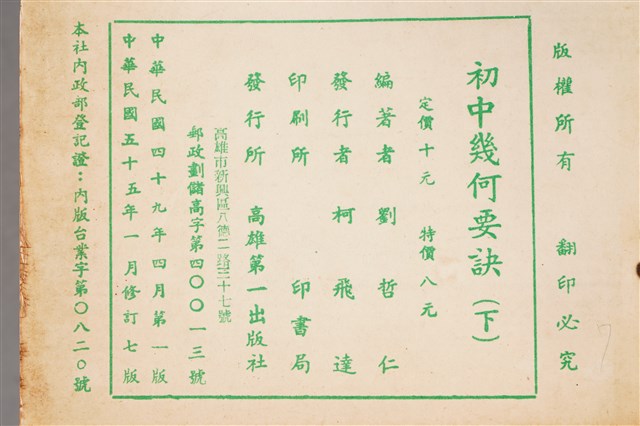 版權所有 翻印必究
初中幾何要訣(下)
定價十元 特價八元
編著者 劉哲仁
發行者 柯飛達
印刷所 印書局
發行所 高雄第一出版社
高雄市新興區八德二路三十七號
郵政劃儲高字第四〇〇一三號
中華民國四十九年四月第一版
中華民國五十五年一月修訂七版
本社內政部登記證：內版台業字第〇八二〇號